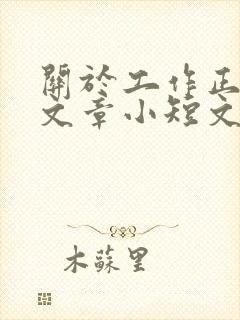 關於工作正
文章小短文
木蘇里